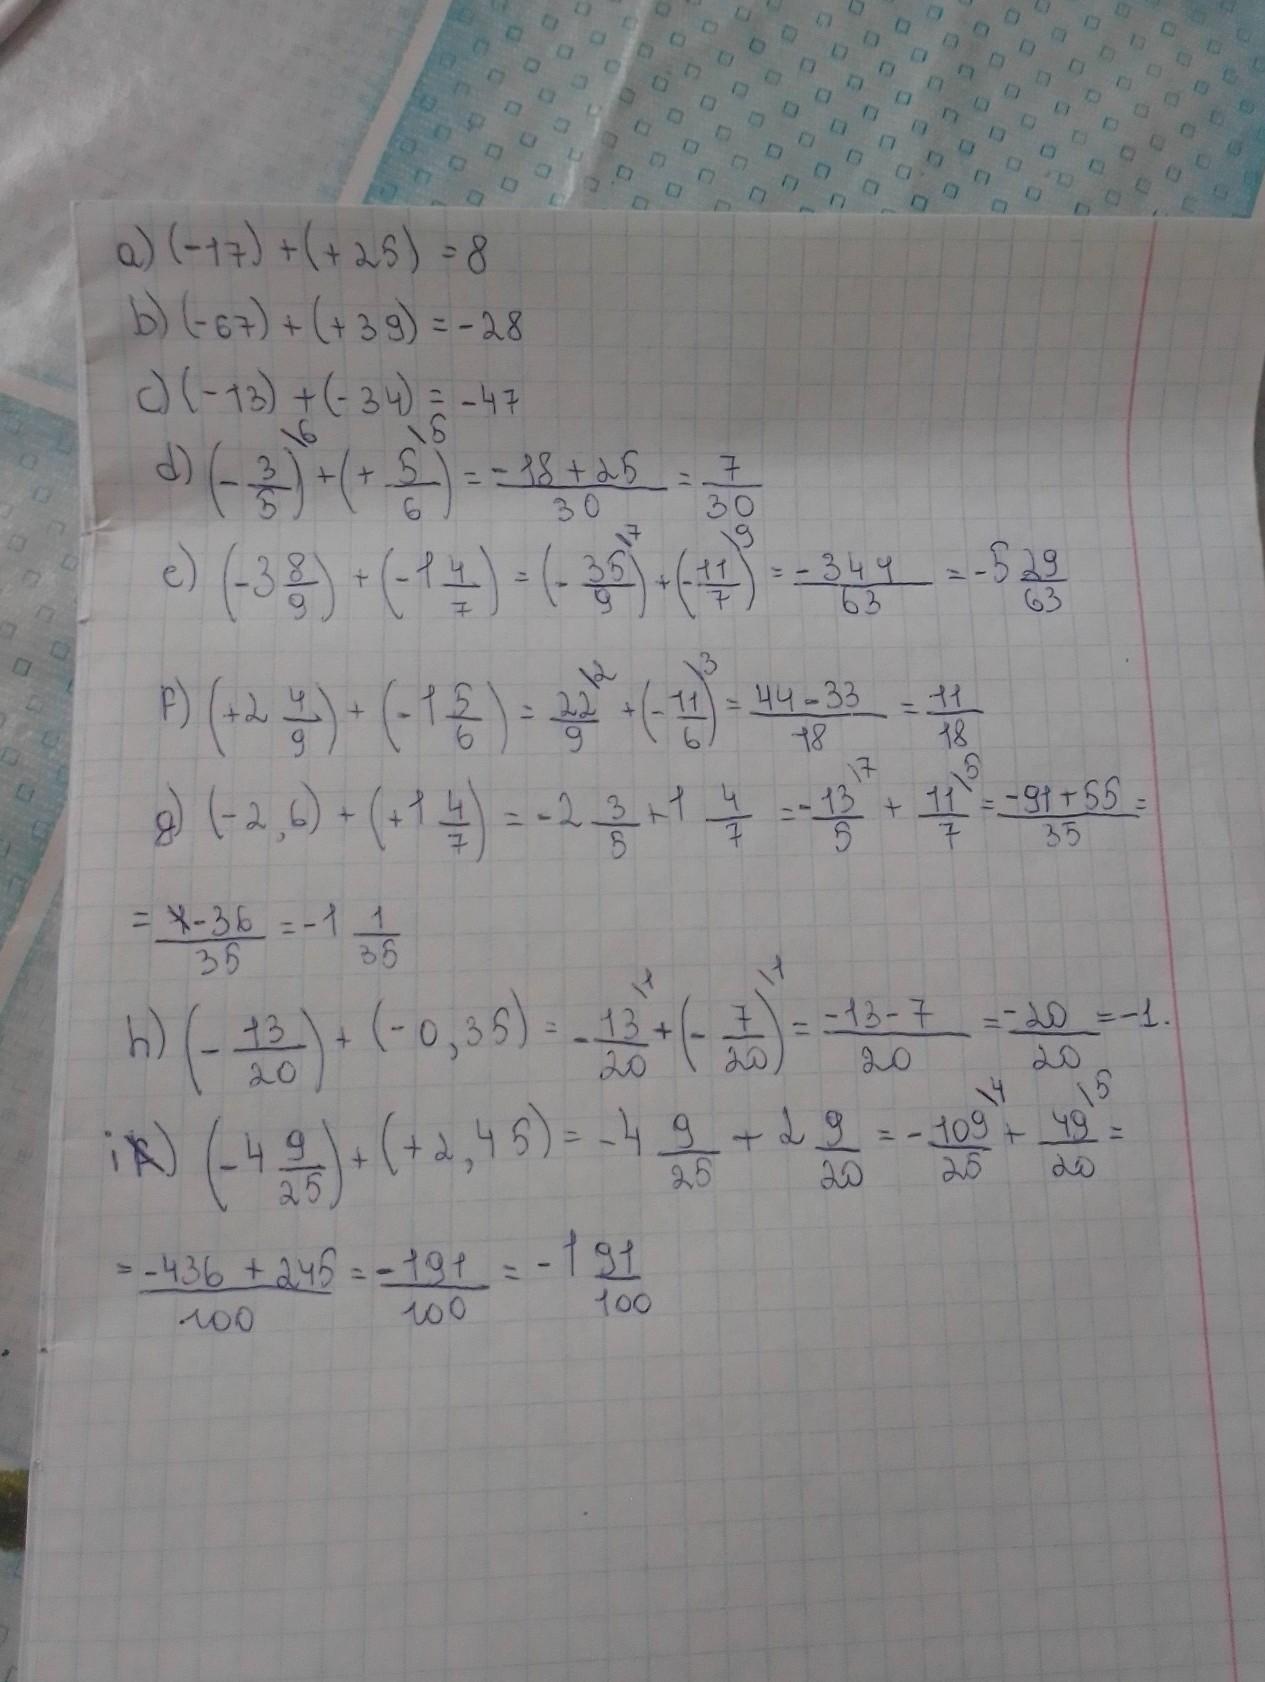 a) (-17) + (+25) = 8
b) (-67) + (+39) = -28
c) (-13) + (-34) = -47
d) (-3/5)\6 + (+5/6)\5 = (-18+25)/30 = 7/30
e) (-3 8/9) + (-1 4/7) = (-35/9)\7 + (-11/7)\9 = -344/63 = -5 29/63
f) (+2 4/9) + (-1 5/6) = 22/9\2 + (-11/6)\3 = (44-33)/18 = 11/18
g) (-2,6) + (+1 4/7) = -2 3/5 + 1 4/7 = -13/5\7 + 11/7\5 = (-91+55)/35 =
= -36/35 = -1 1/35
h) (-13/20) + (-0,35) = -13/20\1 + (-7/20)\1 = (-13-7)/20 = -20/20 = -1.
i) (-4 9/25) + (+2,45) = -4 9/25 + 2 9/20 = -109/25\4 + 49/20\5 =
= (-436+245)/100 = -191/100 = -1 91/100